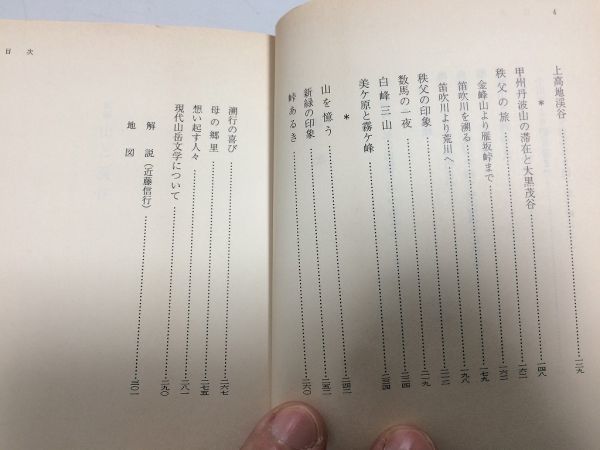 4
上高地渓谷……一二九
*
甲州丹波山の滞在と大黒茂谷……一四八
秩父の旅……一六二
金峰山より雁坂峠まで……一六二
笛吹川を溯る……一七九
笛吹川より荒川へ……一九八
秩父の印象……二一二
数馬の一夜……二一九
白峰三山……二二四
美ケ原と霧ケ峰……二三四
*
山を憶う……二四二
新緑の印象……二五二
峠あるき……二六〇
目次
溯行の喜び……二六七
母の郷里……二七五
想い起す人々……二八一
現代山岳文学について……二九〇
解説(近藤信行)……三〇一
地図